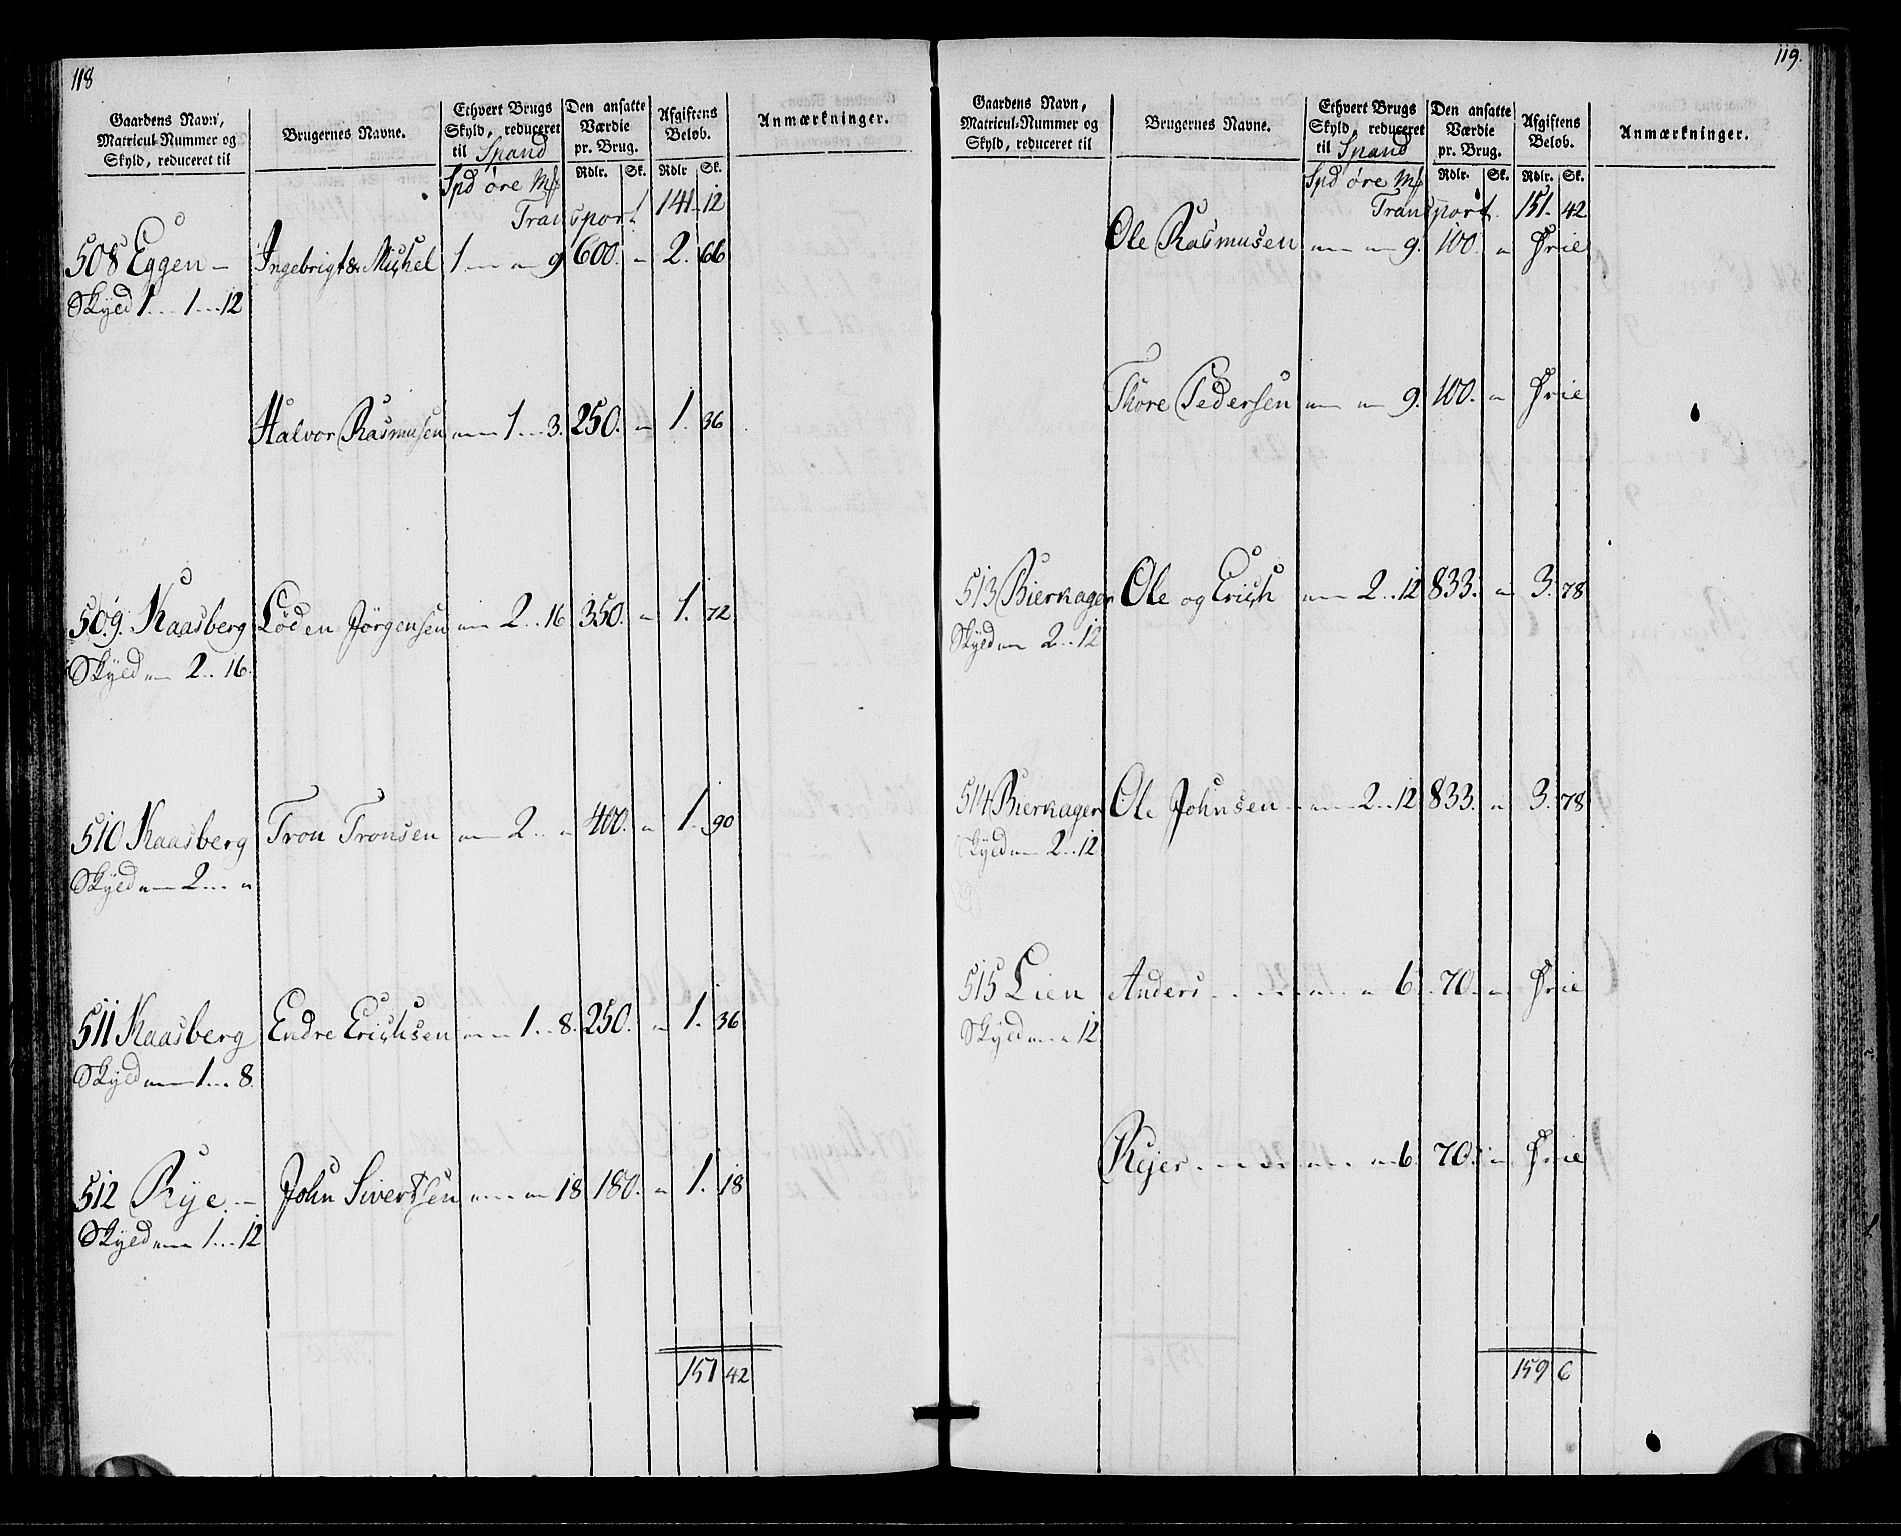 118
Gaardens Navn, Matricul-Nummer og Skyld, reduceret til
Brugernes Navne.
Ethvert Brugs Skyld, reduceret til Spand
Den ansatte Værdie pr. Brug.
Afgiftens Beløb.
Anmærkninger.
Spd øre Mk Rdlr. Sk. Rdlr Sk.
Transport 141 12
508 Eggen — Ingebrigt & Michel 1 .. „ 9 600. „ 2. 66
Skyld 1 ... 1 ... 12
Halvor Rasmusen „ 1 ... 3. 250. „ 1. 36
509. Kaasberg Loden Jørgensen „ 2 .. 16 350. „ 1. 72
Skyld „ 2 .. 16.
510 Kaasberg Tron Tronsen „ 2 .. „ 400. „ 1. 90
Skyld „ 2 ... „
511 Kaasberg Endre Erichsen „ 1 .. 8. 250. „ 1. 36
Skyld „ 1 ... 8.
512 Rye. — John Sivertsen „ „ 18 180. „ 1. 18
Skyld „ 1 ... 12
151 42
119.
Gaardens Navn, Matricul-Nummer og Skyld, reduceret til
Brugernes Navne.
Ethvert Brugs Skyld, reduceret til Spand
Den ansatte Værdie pr. Brug.
Afgiftens Beløb.
Anmærkninger.
Spd øre Mk Rdlr. Sk. Rdlr. Sk.
Transport. 151. 42
Ole Rasmusen „ „ 9. 100. „ Frie
Thore Pedersen „ „ 9. 100. „ Frie
513 Bierkager Ole og Erich „ 2 .. 12 833. „ 3. 78
Skyld „ 2 .. 12
514 Bierkager Ole Johnsen „ 2 .. 12 833. „ 3. 78
Skyld „ 2 .. 12
515 Lien Anders „ „ 6 70. „ Frie
Skyld „ „ 12
Rejer „ „ 6. 70. „ Frie
159 6